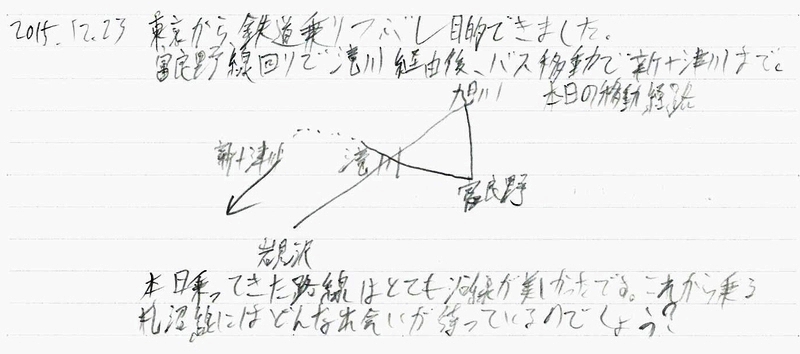 2015.12.23 東京から鉄道乗りつぶし目的できました。
富良野線回りで滝川経由後、バス移動で新十津川まで。
旭川 本日の移動経路
新十津川 滝川
富良野
岩見沢
本日乗ってきた路線はとても沿線が美しかったです。これから乗る
札沼線にはどんな出会いが待っているのでしょう?